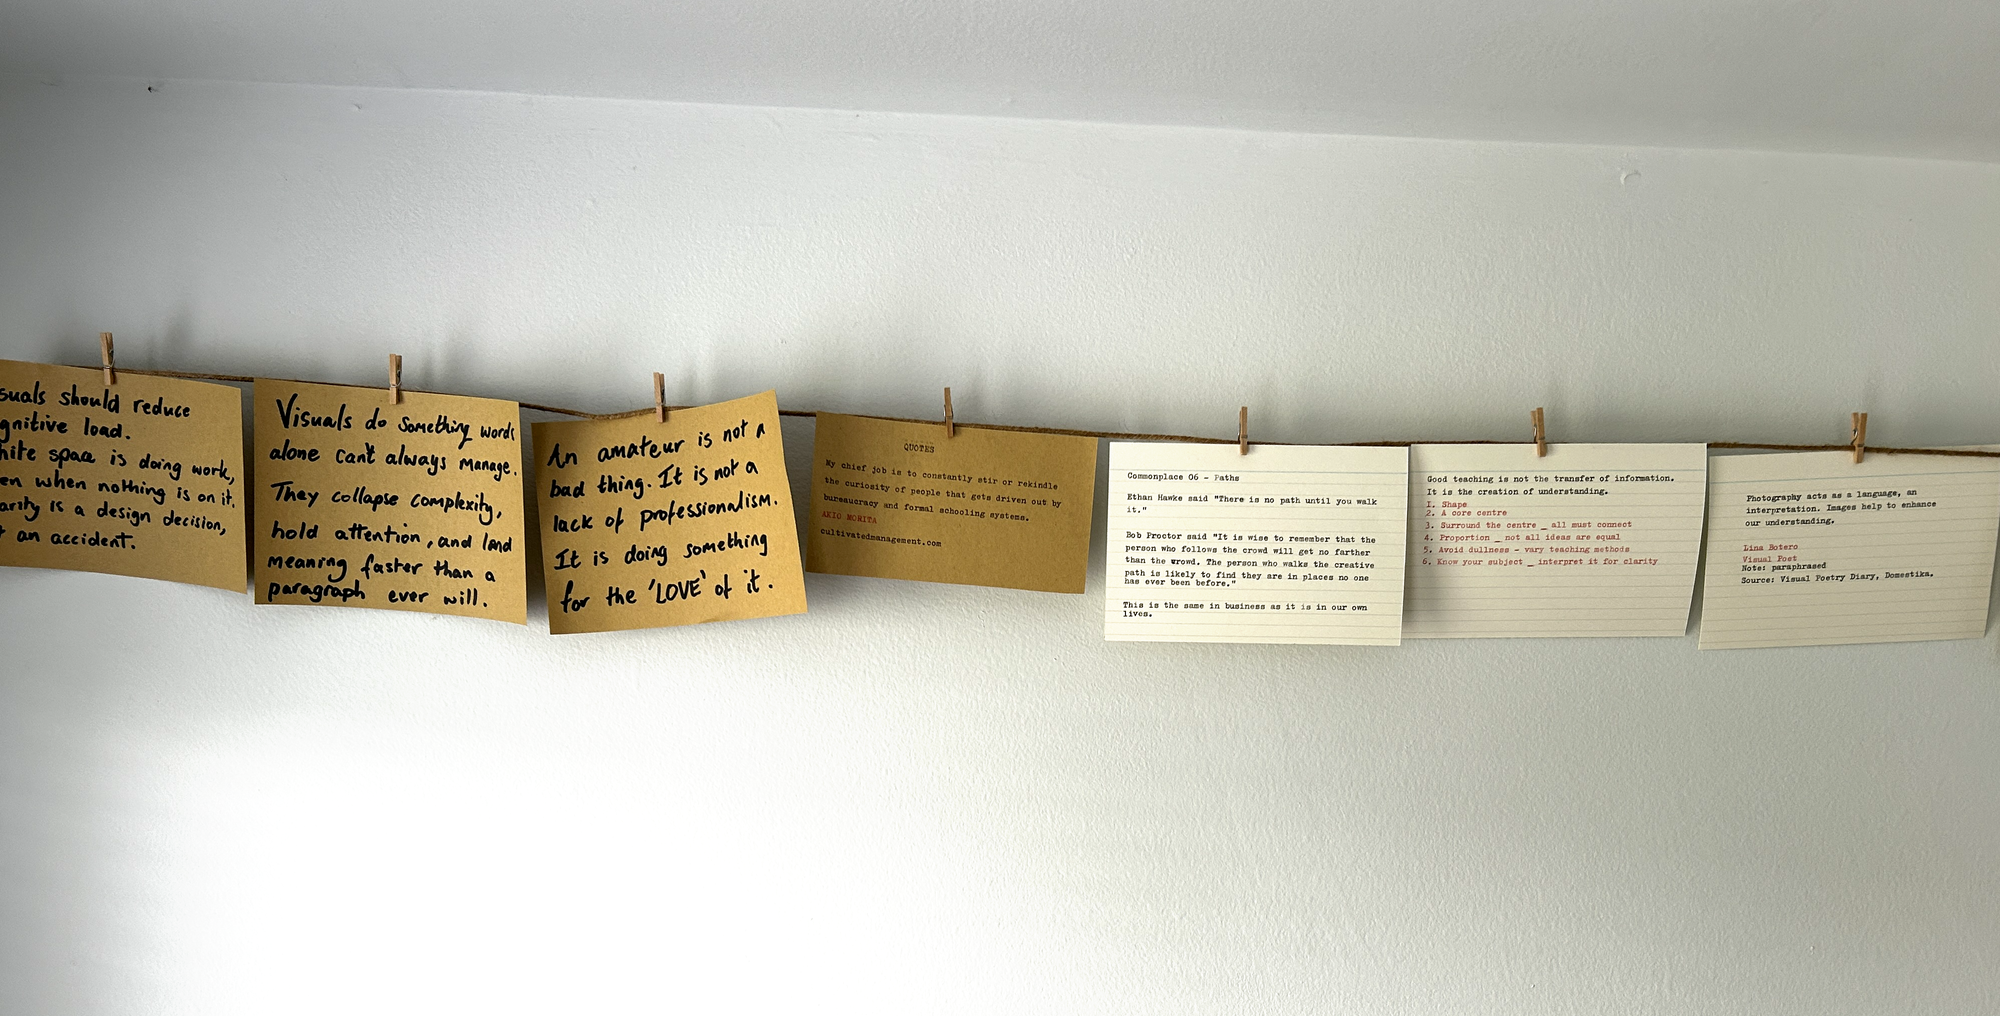 suals should reduce
gnitive load.
hite space is doing work,
en when nothing is on it.
arity is a design decision,
t an accident.
Visuals do something words
alone can't always manage.
They collapse complexity,
hold attention, and land
meaning faster than a
paragraph ever will.
An amateur is not a
bad thing. It is not a
lack of professionalism.
It is doing something
for the 'LOVE' of it.
QUOTES
My chief job is to constantly stir or rekindle
the curiosity of people that gets driven out by
bureaucracy and formal schooling systems.
AKIO MORITA
cultivatedmanagement.com
Commonplace 06 - Paths
Ethan Hawke said "There is no path until you walk
it."
Bob Proctor said "It is wise to remember that the
person who follows the crowd will get no farther
than the crowd. The person who walks the creative
path is likely to find they are in places no one
has ever been before."
This is the same in business as it is in our own
lives.
Good teaching is not the transfer of information.
It is the creation of understanding.
1. Shape
2. A core centre
3. Surround the centre _ all must connect
4. Proportion _ not all ideas are equal
5. Avoid dullness - vary teaching methods
6. Know your subject _ interpret it for clarity
Photography acts as a language, an
interpretation. Images help to enhance
our understanding.
Lina Botero
Visual Poet
Note: paraphrased
Source: Visual Poetry Diary, Domestika.